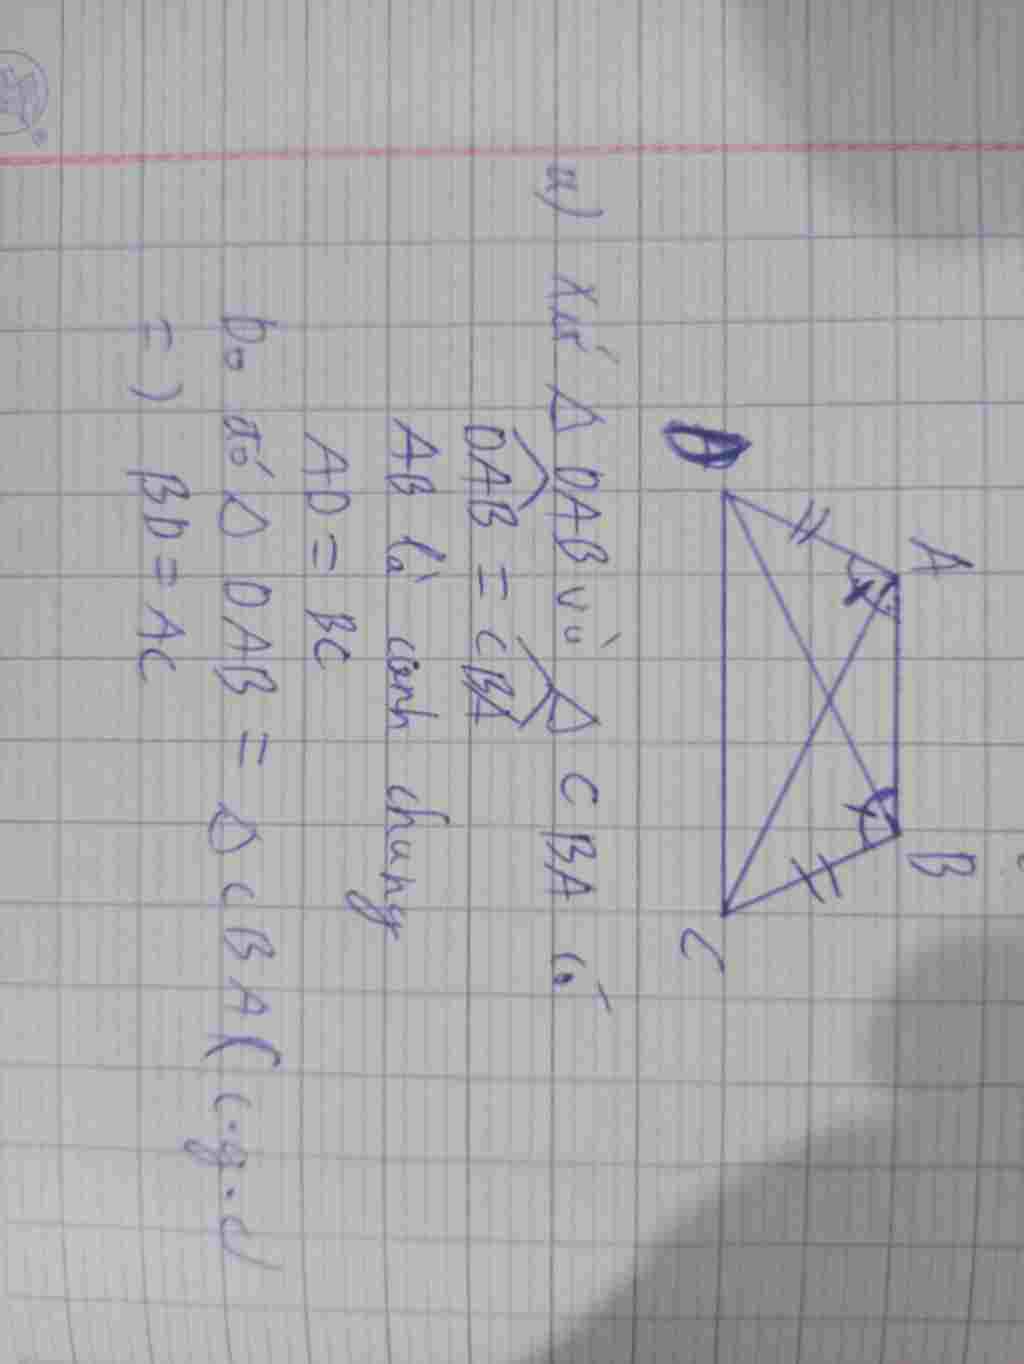 A B
D C
a) Xét Δ DAB và Δ CBA có
DAB = CBA
AB là cạnh chung
AD = BC
Do đó Δ DAB = Δ CBA (c.g.c
=) BD = AC